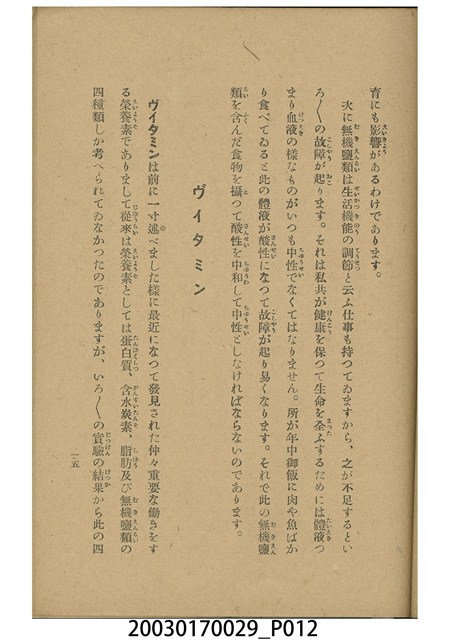 育にも影響があるわけであります。
次に無機鹽類は生活機能の調節と云ふ仕事も持つてゐますから、之が不足するとい
ろ〱の故障が起ります。それは私共が健康を保つて生命を全ふするためには體液つ
まり血液の樣なものがいつも中性でなくてはなりません。所が年中御飯に肉や魚ばか
り食べてゐると此の體液が酸性になつて故障が起り易くなります。それで此の無機鹽
類を含んだ食物を攝つて酸性を中和して中性としなければならないのであります。
ヴイタミン
ヴイタミンは前に一寸述べました樣に最近になつて發見された仲々重要な働きをす
る榮養素でありまして從來は榮養素としては蛋白質、含水炭素、脂肪及び無機鹽類の
四種類しか考へられてゐなかつたのでありますが、いろ〱の實驗の結果から此の四
一五
20030170029_P012